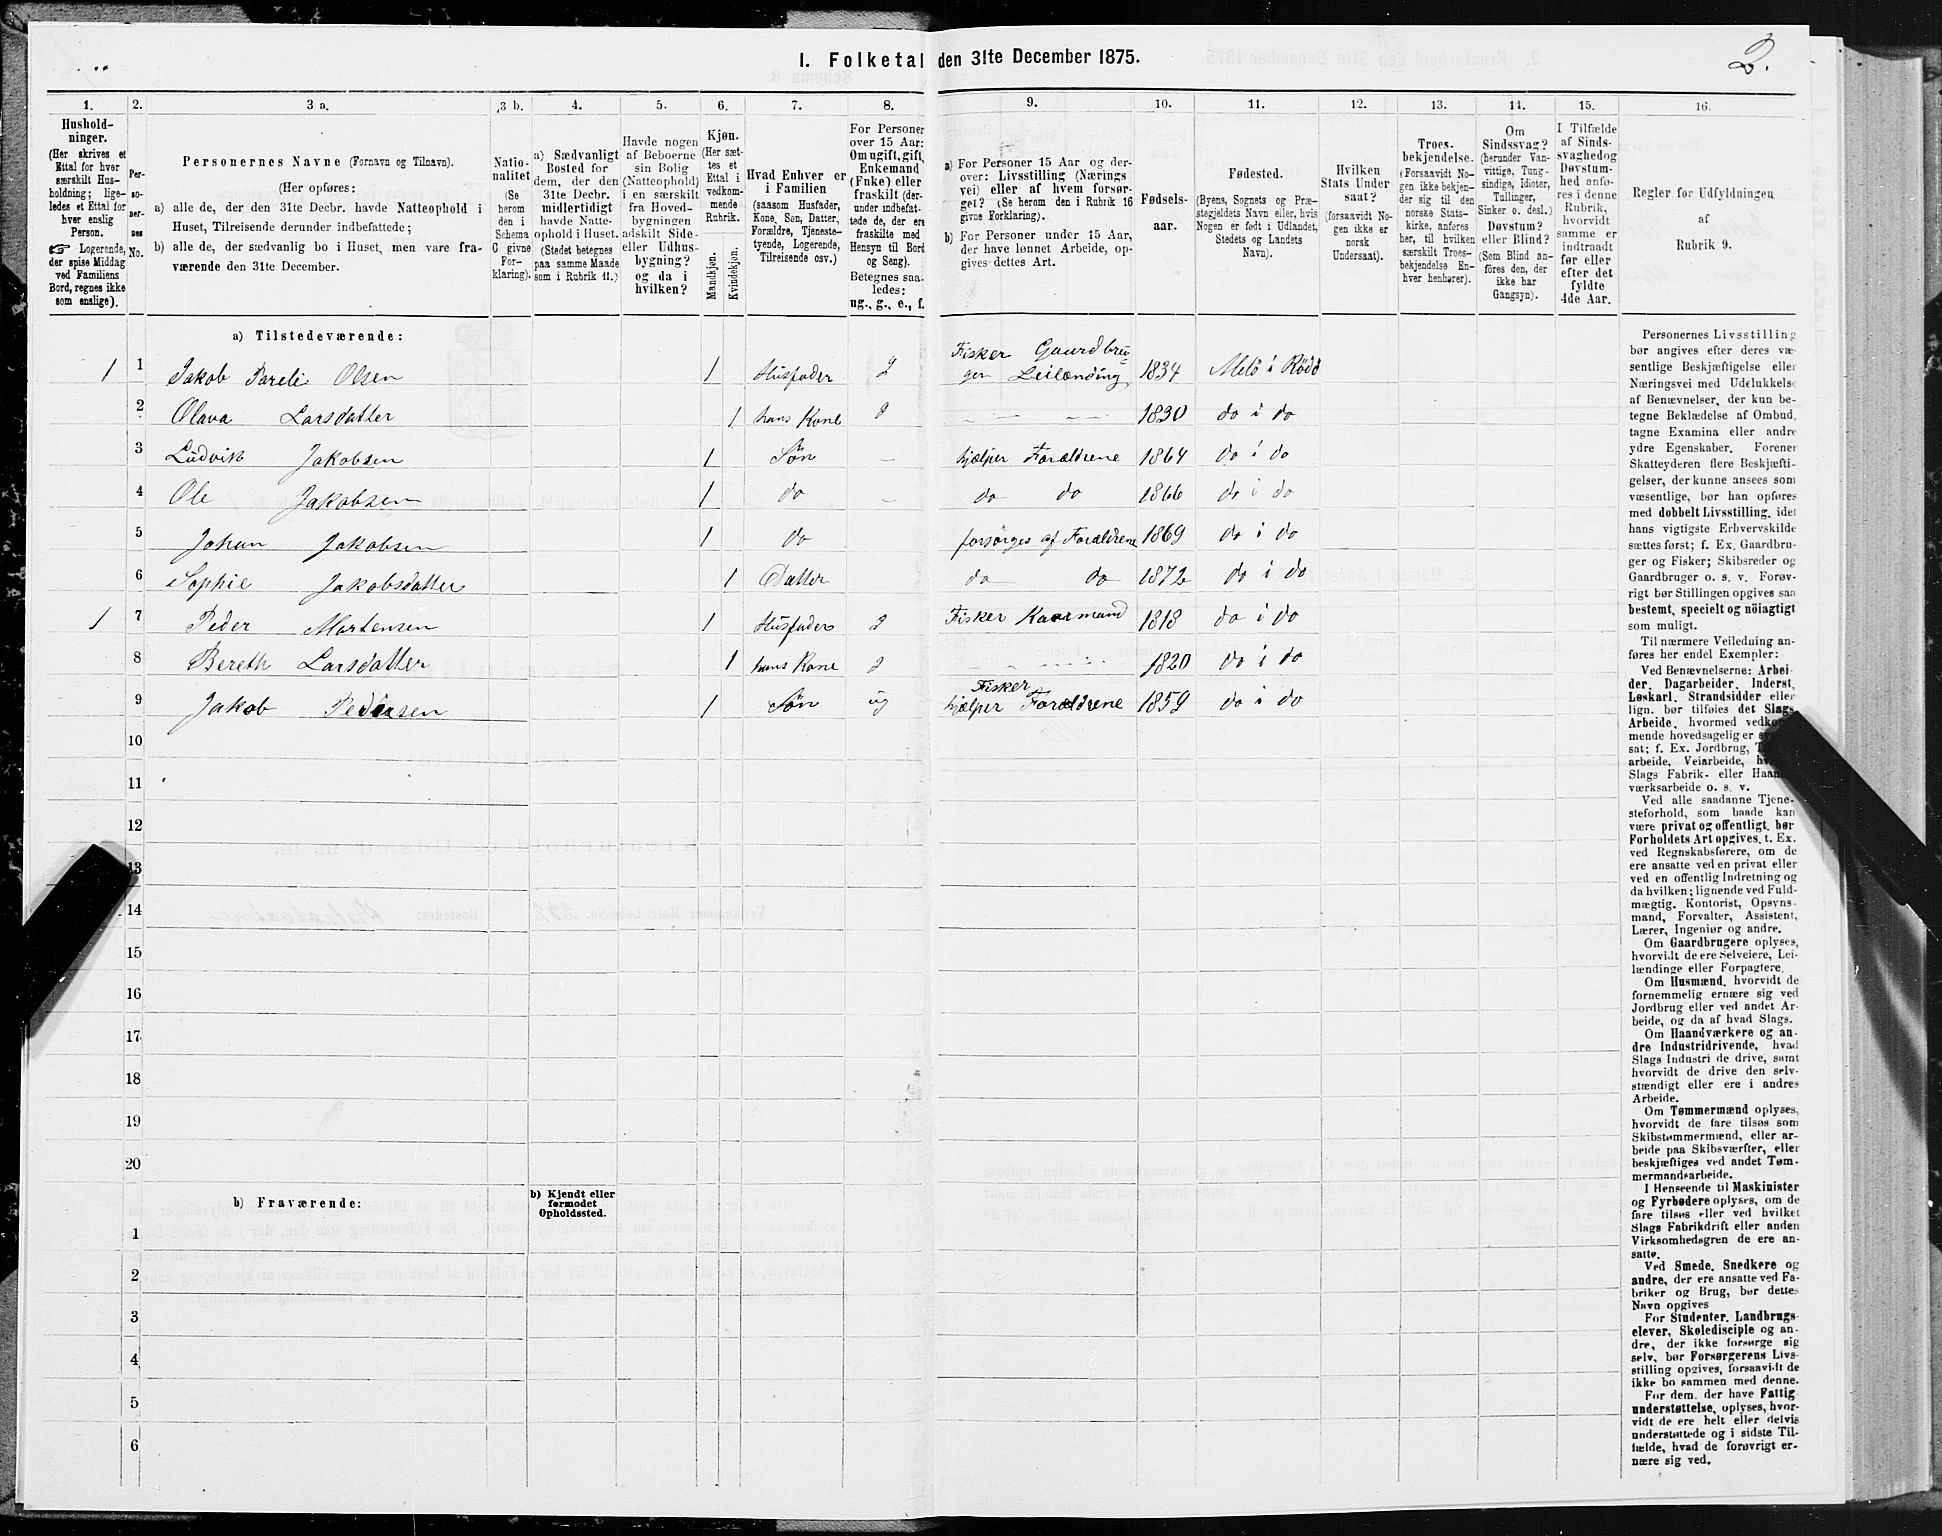 I. Folketal den 31te December 1875.
2.
1. 2. 3 a. 3 b. 4. 5. 6. 7. 8. 9. 10. 11. 12. 13. 14. 15. 16.
Hushold-
ninger.
(Her skrives et
Ettal for hver
særskilt Hus-
holdning; lige-
ledes et Ettal for
hver enslig
Person.
☞ Logerende,
der spise Middag
ved Familiens
Bord, regnes ikke
som enslige).
Per-
so-
ner-
nes
No.
Personernes Navne (Fornavn og Tilnavn).
(Her opføres:
a) alle de, der den 31te Decbr. havde Natteophold i
Huset, Tilreisende derunder indbefattede;
b) alle de, der sædvanlig bo i Huset, men vare fra-
værende den 31te December.
Natio-
nalitet
(Se
herom
den i
Schema
C givne
For-
klaring).
a) Sædvanligt
Bosted for
dem, der den
31te Decbr.
midlertidigt
havde Natte-
ophold i Huset.
(Stedet betegnes
paa samme Maade
som i Rubrik 11.)
Havde nogen
af Beboerne
sin Bolig
(Natteophold)
i en særskilt
fra Hoved-
bygningen
adskilt Side-
eller Udhus-
bygning?
og da i
hvilken?
Kjøn.
(Her sæt-
tes et
Ettal i
vedkom-
mende
Rubrik.
Mandkjøn.
Kvindekjøn.
Hvad Enhver er
i Familien
(saasom Husfader,
Kone, Søn, Datter,
Forældre, Tjeneste-
tyende, Logerende,
Tilreisende osv.)
For Personer
over 15 Aar:
Om ugift, gift,
Enkemand
(Enke) eller
fraskilt (der-
under indbefat-
tede de, der ere
fraskilte med
Hensyn til Bord
og Seng).
Betegnes saa-
ledes:
ug., g., e., f.
a) For Personer 15 Aar og der-
over: Livsstilling (Nærings
vei) eller af hvem forsør-
get? (Se herom den i Rubrik 16
givne Forklaring).
b) For Personer under 15 Aar,
der have lønnet Arbeide, op-
gives dettes Art.
Fødsels-
aar.
Fødested.
(Byens, Sognets og Præ-
stegjeldets Navn eller, hvis
Nogen er født i Udlandet,
Stedets og Landets
Navn).
Hvilken
Stats Under
saat?
(forsaavidt No-
gen ikke er
norsk
Undersaat).
Troes-
bekjendelse.
(Forsaavidt No-
gen ikke bekjen-
der sig til den
norske Stats-
kirke, anføres
her, til hvilken
særskilt Troes-
bekjendelse En-
hver henhører).
Om
Sindssvag?
(herunder Van-
vittige, Tung-
sindige, Idioter,
Tullinger,
Sinker o. desl.)
Døvstum?
eller Blind?
(Som Blind an-
føres den, der
ikke har
Gangsyn).
I Tilfælde
af Sinds-
svaghed og
Døvstum-
hed anfø-
res i denne
Rubrik,
hvorvidt
samme er
indtraadt
før eller
efter det
fyldte
4de Aar.
Regler for Udfyldningen
af
Rubrik 9.
a) Tilstedeværende:
1 1 Jakob Pareli Olsen 1 Husfader g Fisker Gaardbru-
ger Leilænding 1834 Melö i Rödö
2 Olava Larsdatter 1 hans Kone g — — 1830 do i do
3 Ludvik Jakobsen 1 Søn — hjælper Forældrene 1864 do i do
4 Ole Jakobsen 1 do — do do 1866 do i do
5 Johan Jakobsen 1 do forsörges af Forældrene 1869 do i do
6 Sophie Jakobsdatter 1 Datter do do 1872 do i do
1 7 Peder Mortensen 1 Husfader g Fisker Kaarmand 1818 do i do
8 Bereth Larsdatter 1 hans Kone g 1820 do i do
9 Jakob Pedersen 1 Søn ug Fisker
hjælper Forældrene 1859 do i do
10
11
12
13
14
15
16
17
18
19
20
b) Fraværende:
b) Kjendt eller
formodet
Opholdssted.
1
2
3
4
5
6
Personernes Livsstilling
bør angives efter deres væ-
sentlige Beskjæftigelse eller
Næringsvei med Udelukkelse
af Benævnelser, der kun be-
tegne Beklædelse af Ombud,
tagne Examina eller andre
ydre Egenskaber. Forener
Skatteyderen flere Beskjæfti-
gelser, der kunne ansees som
væsentlige, bør han opføres
med dobbelt Livsstilling, idet
hans vigtigste Erhvervskilde
sættes først; f. Ex. Gaardbru-
ger og Fisker; Skibsreder og
Gaardbruger o. s. v. Forøv-
rigt bør Stillingen opgives saa
bestemt, specielt og nöiagtigt
som muligt.
Til nærmere Veiledning an-
føres her endel Exempler:
Ved Benævnelserne: Arbei-
der, Dagarbeider, Inderst,
Løskarl, Strandsidder eller
lign. bør tilføies det Slags
Arbeide, hvormed vedkom-
mende hovedsagelig er
sat; f. Ex. Jordbrug,
arbeide, Veiarbeide,
Slags Fabrik- eller Haand-
værksarbeide o. s. v.
Ved alle saadanne Tjene-
steforhold, som baade kan
være privat og offentligt, bør
Forholdets Art opgives, t. Ex.
ved Regnskabsførere, om de
ere ansatte ved en privat eller
ved en offentlig Indretning og
da hvilken; lignende ved Fuld-
mægtig, Kontorist, Opsyns-
mand, Forvalter, Assistent,
Lærer, Ingeniør og andre.
Om Gaardbrugere oplyses,
hvorvidt de ere Selveiere, Lei-
lændinge eller Forpagtere.
Om Husmænd, hvorvidt de
fornemmelig ernære sig ved
Jordbrug eller ved andet Ar-
beide, og da af hvad Slags.
Om Haandværkere og an-
dre Industridrivende, hvad
Slags Industri de drive, samt
hvorvidt de drive den selv-
stændigt eller ere i andres
Arbeide.
Om Tømmermænd oplyses,
hvorvidt de fare tilsøs som
Skibstømmermænd, eller ar-
beide paa Skibsværfter, eller
beskjæftiges ved andet Tøm-
mermandsarbeide.
I Henseende til Maskinister
og Fyrbødere oplyses, om de
fare tilsøs eller ved hvilket
Slags Fabrikdrift eller anden
Virksomhedsgren de ere an-
satte.
Ved Smede, Snedkere og
andre, der ere ansatte ved Fa-
briker og Brug, bør dettes
Navn opgives
For Studenter, Landbrugs-
elever, Skoledisciple og an-
dre, der ikke forsørge sig
selv, bør Forsørgerens Livs-
stilling opgives, forsaavidt de
ikke bo sammen med denne.
For dem, der have Fattig-
understøttelse, oplyses, hvor-
vidt de ere helt eller delvis
understøttede og i sidste Til-
fælde, hvad de forøvrigt er-
nære sig ved.